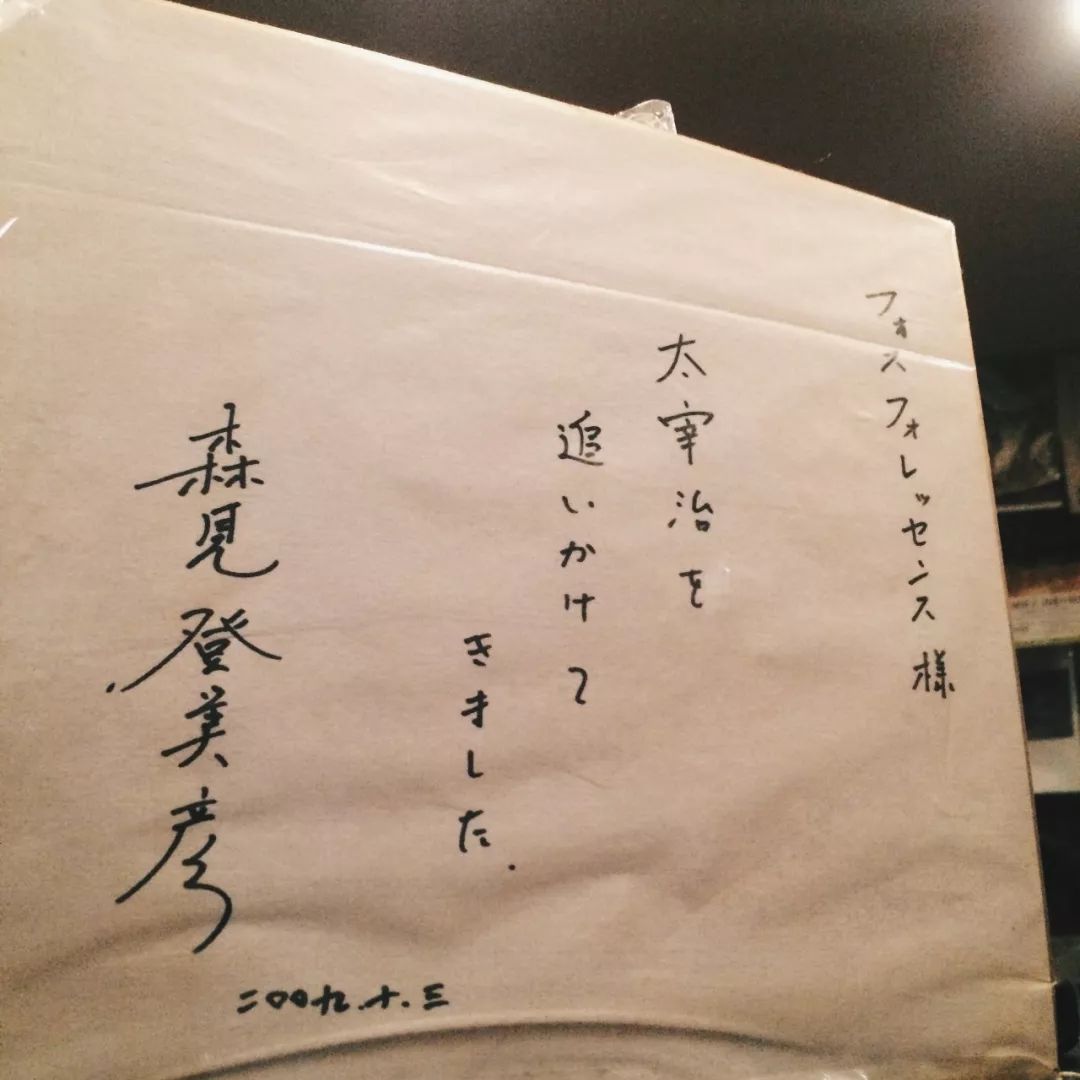 フォスフォレッセンス様
太宰治を
追いかけて
きました.
森見登美彦
二〇〇九.十.三